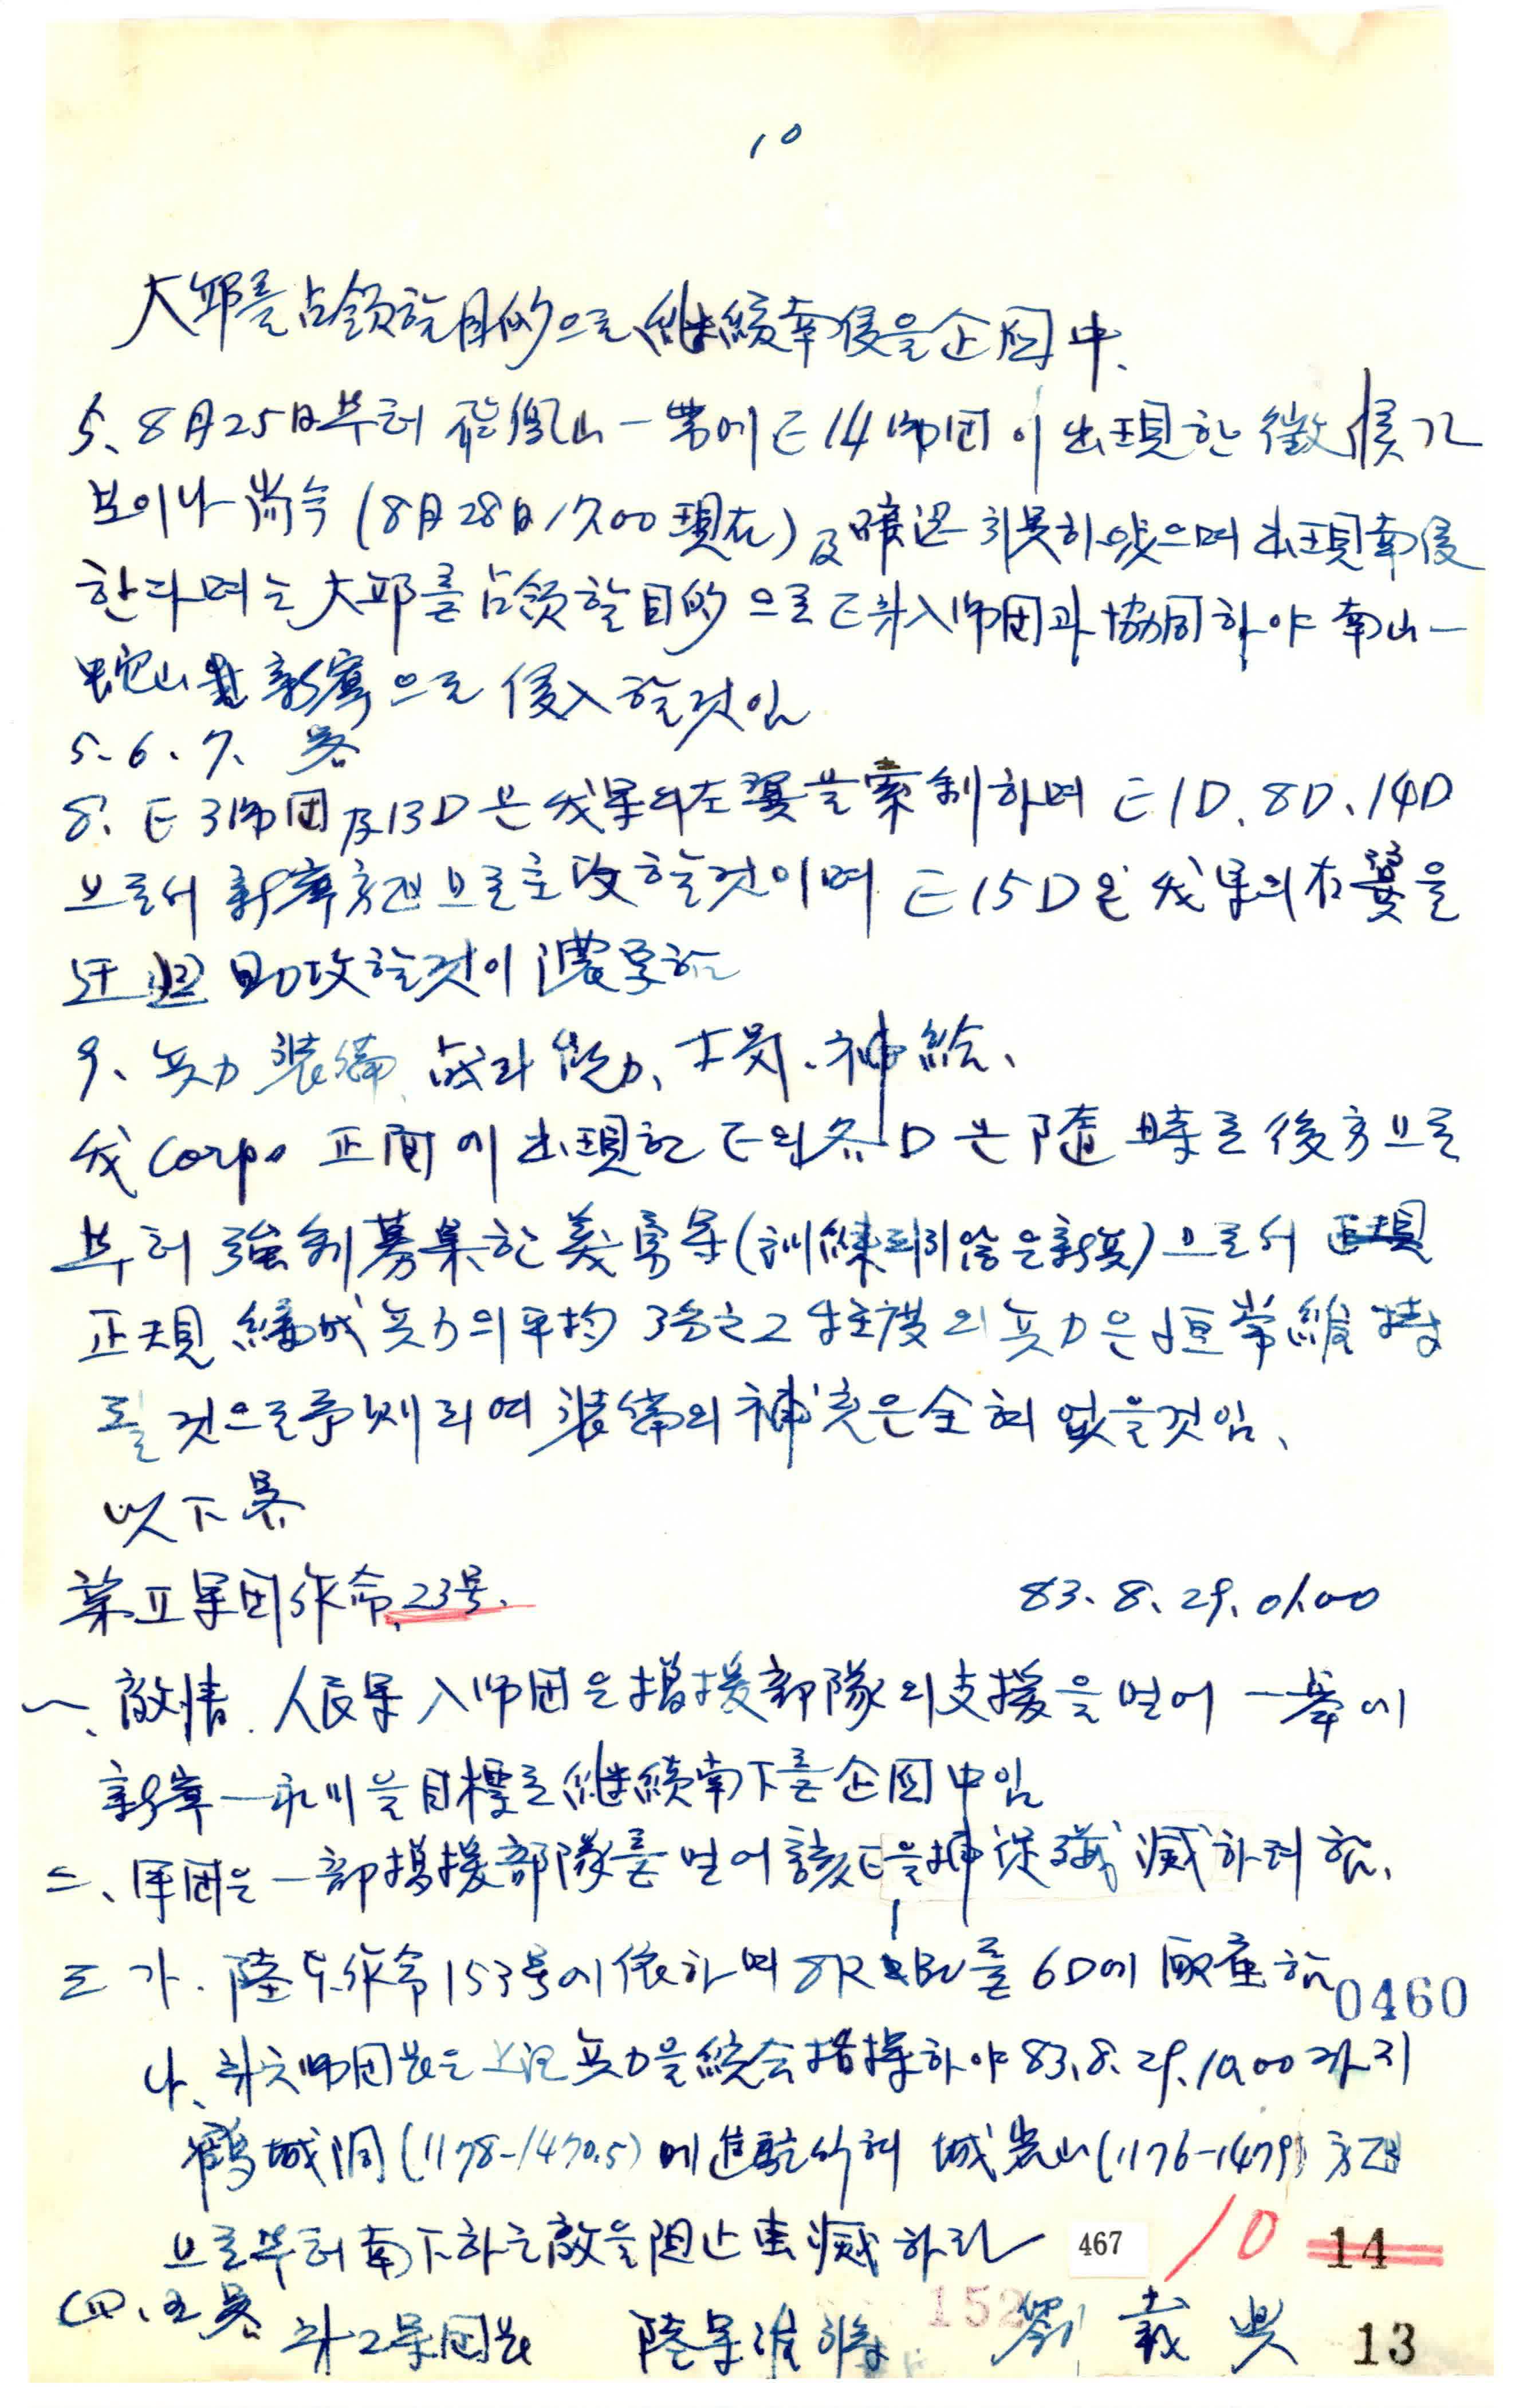 10
大邱를 占領할 目的으로 継続 南侵을 企図中、
5、8月25日부터 一帯에 E 14师団이 出現한 徴候가
보이나 尚今 (8月28日 1700 現在) 하였으며 出現南侵
한다며는 大邱를 占領할 目的으로 E 才八师団과 協同하야 南山—
蛇山 新寧으로 侵入할것임
5. 6. 7. 畧
8. E 3师団及13D은 我军의 左翼을 索制하며 E 1D、8D、14D
으로서 新寧方面으로 主攻할것이며 E 15D은 我军의 右翼을
迂廻 助攻할것이 濃厚함
9、兵力 装備、战斗能力、士気、補給、
我 Corps 正面에 出現한 E의 各D은 随時로 後方으로
부터 強制募集한 義勇军(訓練되지않은新兵)으로서
正規編成兵力의 平均 3分之2 程度의 兵力은 恒常 維持
될 것으로 予測되며 装備의 補充은 全혀 없을것임、
以下畧
第Ⅱ军団作命 23号. 83. 8. 29. 0100
一、敵情. 人民军 八师団은 增援部隊의 支援을 얻어 一挙에
新寧—永川을 目標로 継続南下를 企図中임
二、军団은 一部增援部隊를 얻어 該E을 捕捉殲滅하려 함、
三 가. 陸本作命 153号에 依하며 8R BN를 6D에 配屬함
나、才六师団長은 上記 兵力을 統合指揮하야 83. 8. 29. 1000 까지
鶴城洞 (1178-1470.5)에 進駐 城岩山 (1176-1479) 方面
으로부터 南下하는 敵을 阻止 滅하라
四、以畧
才2军団長 陸军准将 劉載興
0460
467
10
14
152
13